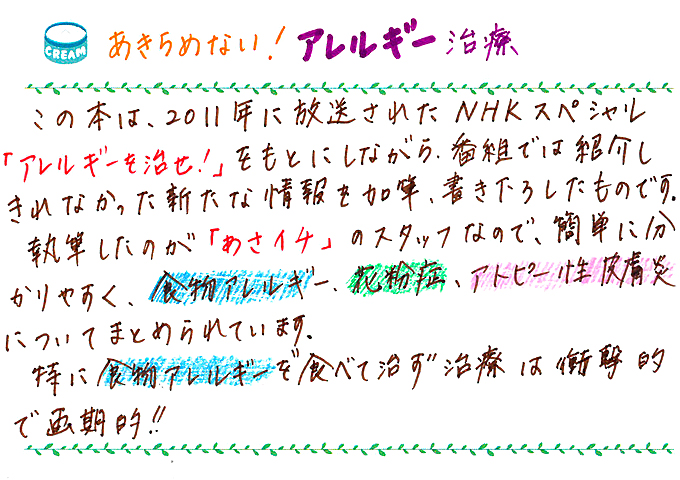 CREAM あきらめない! アレルギー治療
この本は、2011年に放送されたNHKスペシャル
「アレルギーを治せ!」をもとにしながら、番組では紹介し
きれなかった新たな情報を加筆、書きおろしたものです。
執筆したのが「あさイチ」のスタッフなので、簡単に分
かりやすく、食物アレルギー、花粉症、アトピー性皮膚炎
についてまとめられています。
特に食物アレルギーを食べて治す治療は衝撃的
で画期的!!